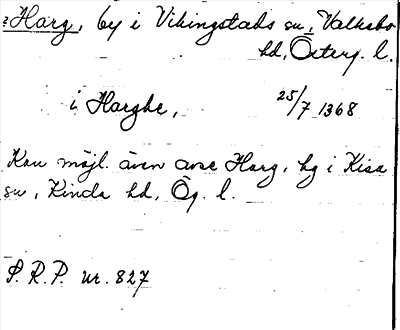 ? Harg, by i Vikingstads sn, Valkebo
hd, Österg. l.
i Harghe, 25/7 1368
Kan möjl. även avse Harg, hg i Kisa
sn, Kinda hd, Ög. l.
S. R. P. nr. 827